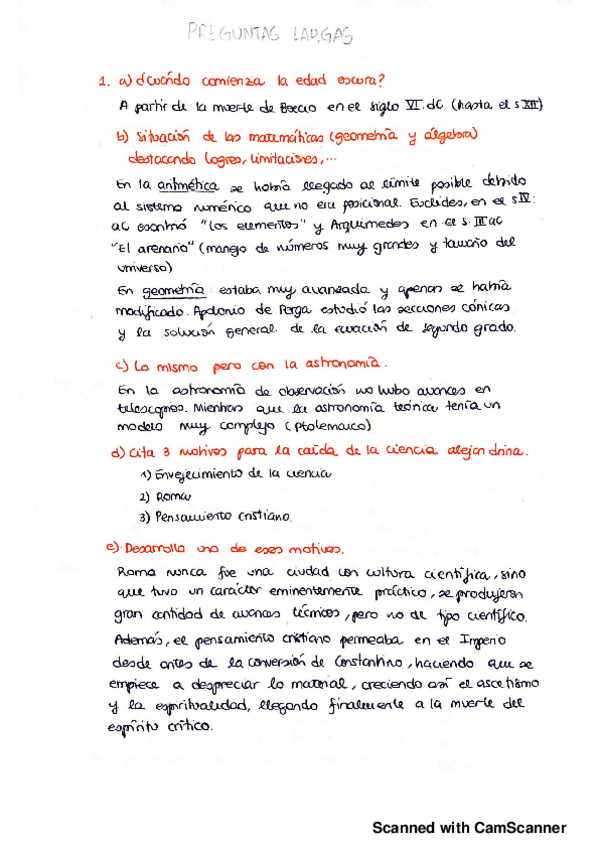 PREGUNTAS LARGAS
1. a) ¿Cuándo comienza la edad oscura?
A partir de la muerte de Boecio en el siglo VI dC (hasta el s XIII)
b) Situación de las matemáticas (geometría y álgebra)
destacando logros, limitaciones, ...
En la aritmética se había llegado al límite posible debido
al sistema numérico que no era posicional. Euclides, en el s IV:
aC escribió "Los elementos" y Arquímedes en el s. III aC
"El arenario" (manejo de números muy grandes y tamaño del
universo)
En geometría: estaba muy avanzada y apenas se había
modificado. Apolonio de Perga estudió las secciones cónicas
y la solución general de la ecuación de segundo grado.
c) Lo mismo pero con la astronomía.
En la astronomía de observación no hubo avances en
telescopios. Mientras que la astronomía teórica tenía un
modelo muy complejo (Ptolemaico)
d) Cita 3 motivos para la caída de la ciencia alejandrina.
1) Envejecimiento de la ciencia
2) Roma
3) Pensamiento cristiano.
e). Desarrolla uno de esos motivos.
Roma nunca fue una ciudad con cultura científica, sino
que tuvo un carácter eminentemente práctico, se produjeron
gran cantidad de avances técnicos, pero no de tipo científico.
Además, el pensamiento cristiano permeaba en el Imperio
desde antes de la conversión de Constantino, haciendo que se
empiece a despreciar lo material, creciendo así el ascetismo
y la espiritualidad, llegando finalmente a la muerte del
espíritu crítico.
Scanned with CamScanner